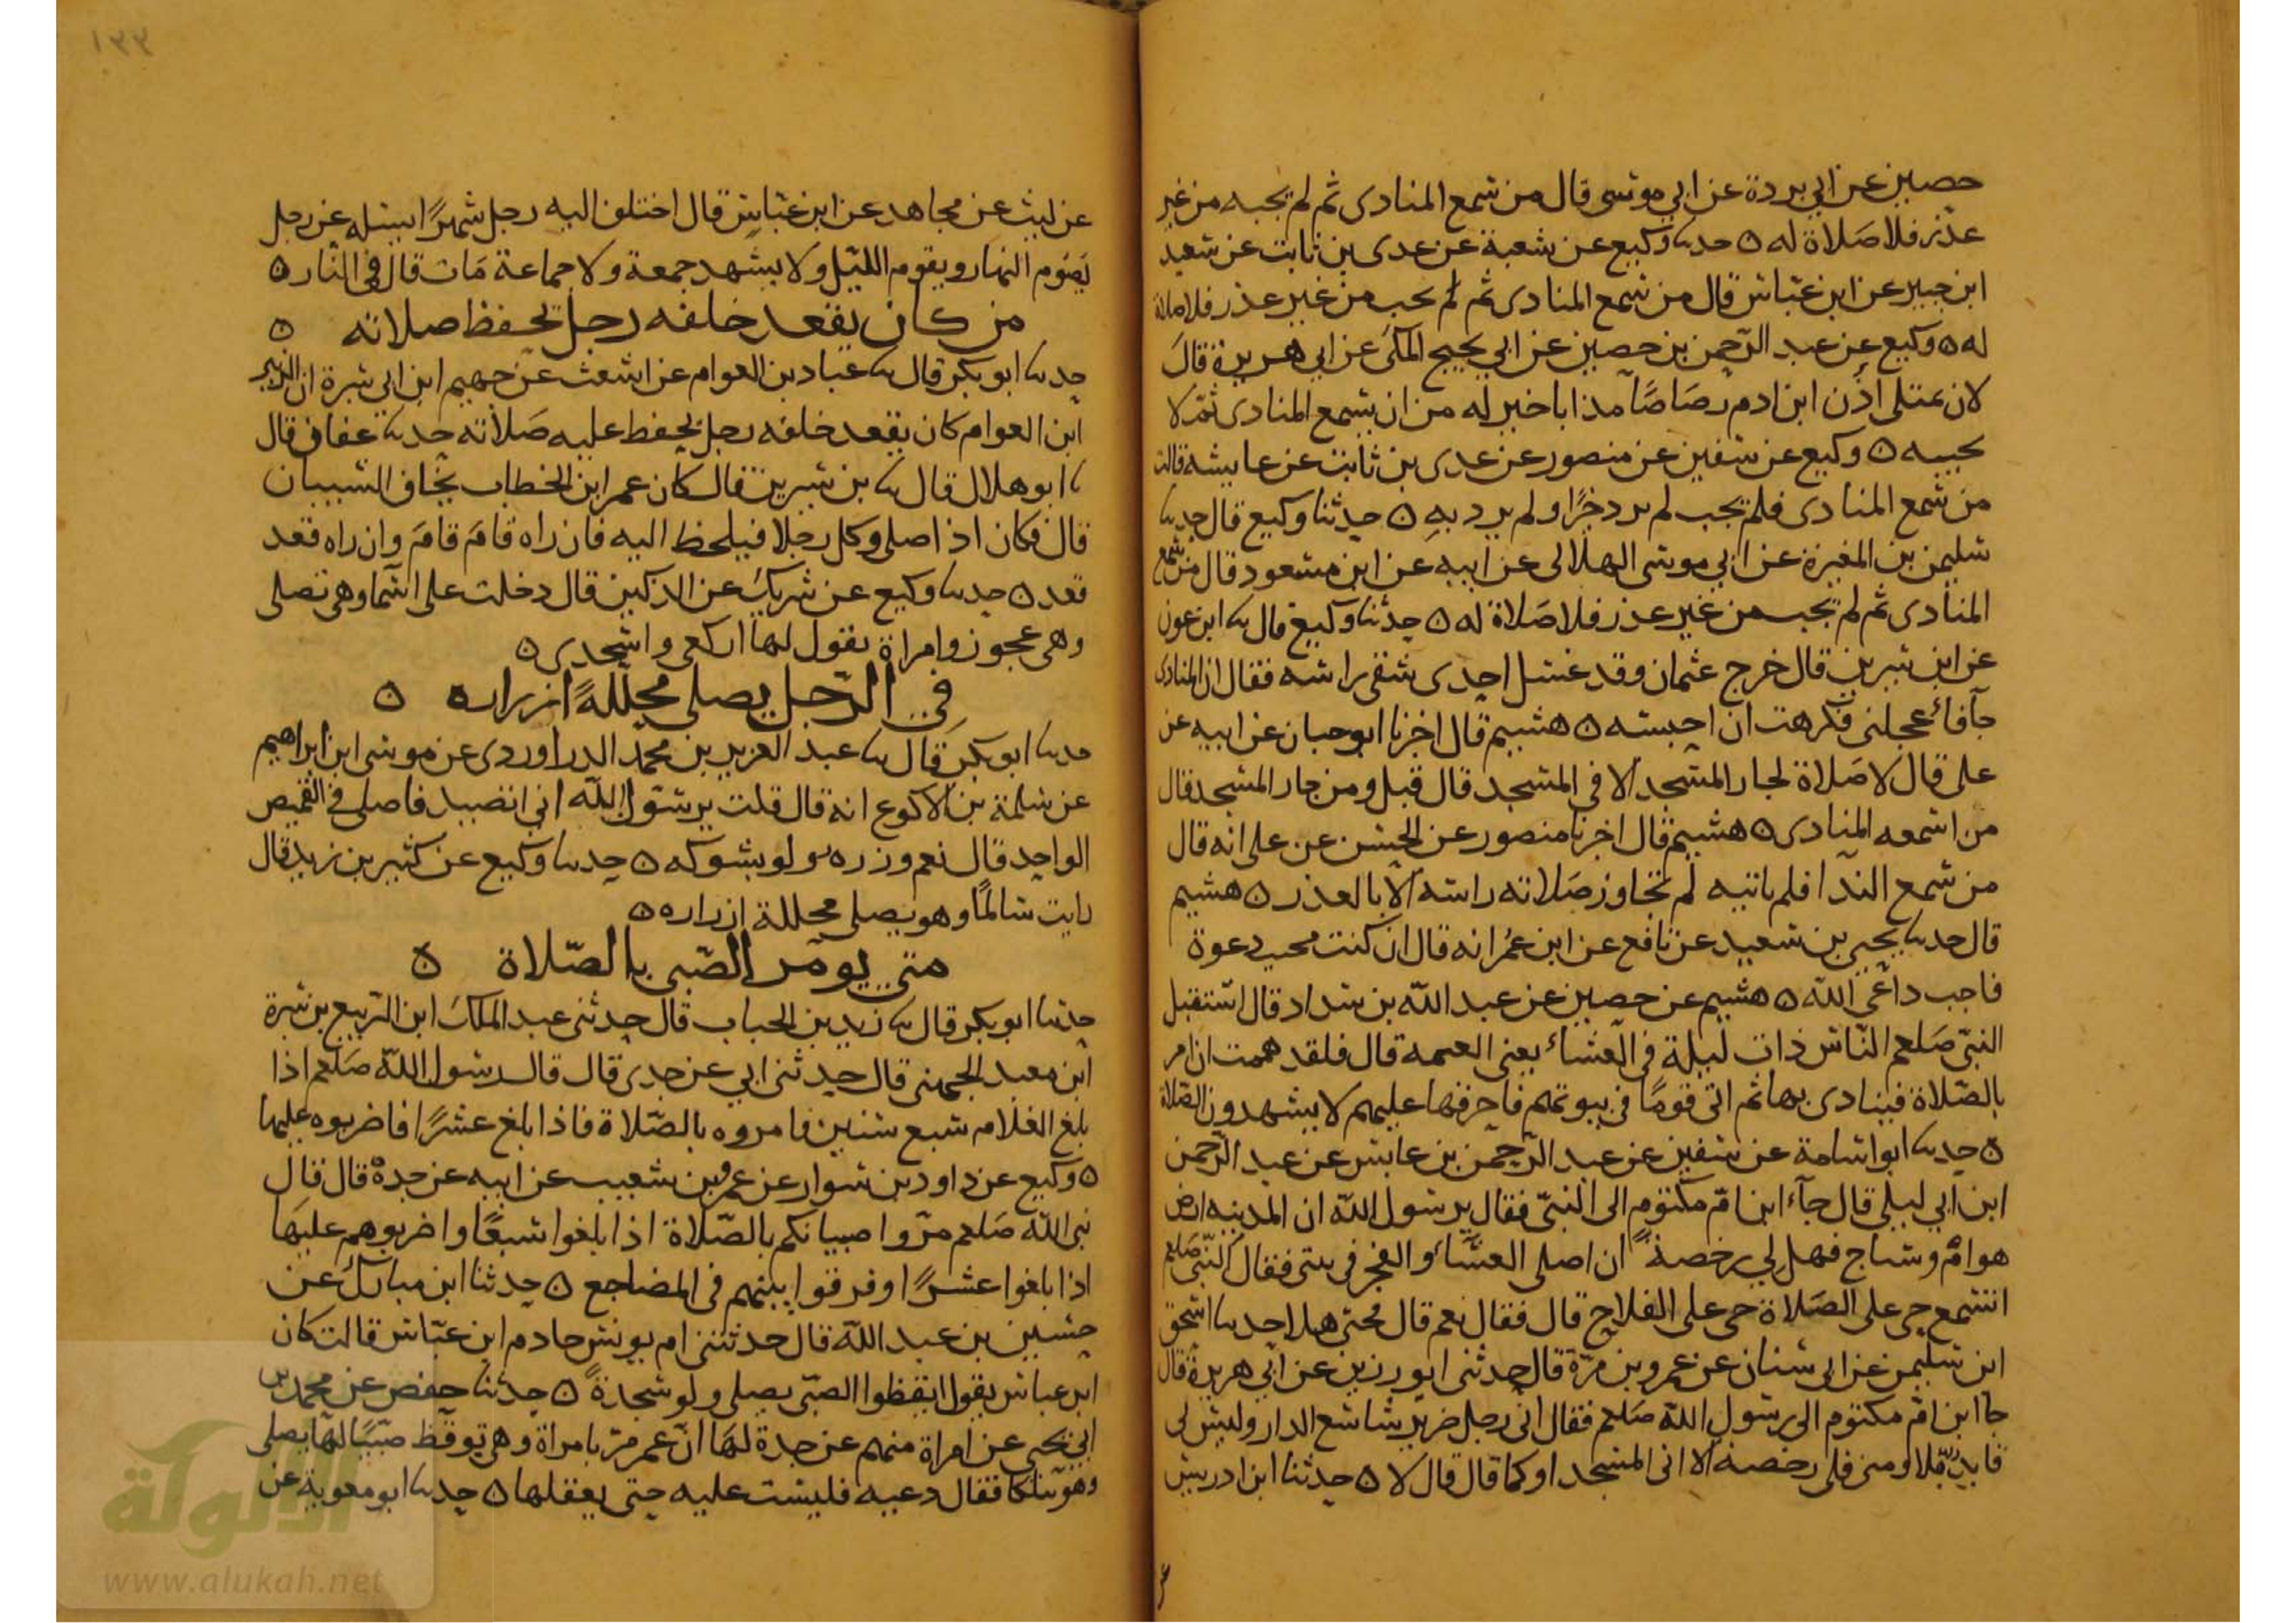 حصين عن ابي بردة عن ابي موسى قال من سمع المنادى ثم لم يجبه من غير
عذر فلا صلاة له ه حدثنا وكيع عن شعبة عن عدى بن ثابت عن سعيد
ابن جبير عن ابن عباس قال من سمع المنادى ثم لم يجب من غير عذر فلا صلاة
له ه وكيع عن عبد الرحمن بن حصين عن ابي نجيح المكى عن ابي هريرة قال
لان يمتلى اذن ابن ادم رصاصا مذابا خير له من ان يسمع المنادى ثم لا
يجيبه ه وكيع عن سفين عن منصور عن عدى بن ثابت عن عايشه قالت
من سمع المنادى فلم يجب لم يرد خيرا ولم يرد به ه حدثنا وكيع قال حدثنا
سليمن بن المغيرة عن ابي موسى الهلالى عن ابيه عن ابن مسعود قال من سمع
المنادى ثم لم يجب من غير عذر فلا صلاة له ه حدثنا وكيع قال ثنا ابن عون
عن ابن سيرين قال خرج عثمان وقد غسل احدى شقى راسه فقال ان المنادى
جآ فاعجلنى فكرهت ان احبسه ه هشيم قال اخبرنا ابو حيان عن ابيه عن
على قال لا صلاة لجار المسجد الا فى المسجد قال قيل ومن جار المسجد قال
من اسمعه المنادى ه هشيم قال اخبرنا منصور عن الحسن عن على انه قال
من سمع الندآ فلم ياتيه لم تجاوز صلاته راسه الا بالعذر ه هشيم
قال حدثنا يحيى بن سعيد عن نافع عن ابن عمر انه قال ان كنت مجيب دعوة
فاجب داعى الله ه هشيم عن حصين عن عبد الله بن شداد قال استقبل
النبى صلعم الناس ذات ليلة فى العشاء يعنى العتمه قال فلقد هممت ان امر
بالصلاة فينادى بها ثم اتى قوما فى بيوتهم فاحرقها عليهم لا يشهدون الصلاة
ه حدثنا ابو اسامة عن سفين عن عبد الرحمن بن عابس عن عبد الرحمن
ابن ابي ليلى قال جآء ابن ام مكتوم الى النبى فقال يرسول الله ان المدينه ارض
هوام وسباج فهل لي رخصة ان اصلى العشاء والفجر فى بيتى فقال النبى صلعم
اتسمع حى على الصلاة حى على الفلاح قال فقال نعم قال فحى هلا حدثنا اسحق
ابن سليمن عن ابي سنان عن عمرو بن مرة قال حدثنى ابو رزين عن ابي هريرة قال
جا ابن ام مكتوم الى رسول الله صلعم فقال انى رجل ضرير شاسع الدار وليس لى
قايد فلى رخصة الا اتى المسجد او كما قال قال لا ه حدثنا ابن ادريس
عن ليث عن مجاهد عن ابن عباس قال اختلف اليه رجل شهرا يسئله عن رجل
يصوم النهار ويقوم الليل ولا يشهد جمعة ولا جماعة مات قال فى النار ه
من كان يقعد خلفه رجل يحفظ صلاته ه
حدثنا ابو بكر قال ثنا عباد بن العوام عن اشعث عن جهيم ابن ابي سبرة ان الزبير
ابن العوام كان يقعد خلفه رجل يحفظ عليه صلاته حدثنا عفان قال
ثنا ابو هلال قال ثنا بن سيرين قال كان عمر ابن الخطاب يخاف النسيان
قال فكان اذا صلى وكل رجلا فيلحظ اليه فان راه قام قام وان راه قعد
قعد ه حدثنا وكيع عن شريك عن الركين قال دخلت على اسما وهى تصلى
وهى عجوز وامراة يقول لها اركعى واسجدى ه
فى الرجل يصلى محللة ازراره ه
حدثنا ابو بكر قال ثنا عبد العزيز بن محمد الدراوردى عن موسى ابن ابراهيم
عن سلمة بن الاكوع انه قال قلت يرسول الله انى اتصيد فاصلى فى القميص
الواحد قال نعم وزره ولو بشوكه ه حدثنا وكيع عن كثير بن زيد قال
رايت سالما وهو يصلى محللة ازراره ه
متى يومر الصبى بالصلاة ه
حدثنا ابو بكر قال ثنا زيد بن الحباب قال حدثنى عبد الملك ابن الربيع بن سبرة
ابن معبد الجهنى قال حدثنى ابي عن جدى قال قال رسول الله صلعم اذا
بلغ الغلام سبع سنين فامروه بالصلاة فاذا بلغ عشرا فاضربوه عليها
ه وكيع عن داود بن سوار عن عمرو بن شعيب عن ابيه عن جده قال قال
نبى الله صلعم مروا صبيانكم بالصلاة اذا بلغوا سبعا واضربوهم عليها
اذا بلغوا عشرا وفرقوا بينهم فى المضاجع ه حدثنا ابن مبارك عن
حسين بن عبد الله قال حدثتنى ام يونس خادم ابن عباس قالت كان
ابن عباس يقول ايقظوا الصبى يصلى ولو سجدة ه حدثنا حفص عن محمد بن
ابي يحيى عن امراة منهم عن جدة لها ان عمر مر بامراة وهى توقظ صبيا لها يصلى
وهو يتلكا فقال دعيه فليست عليه حتى يعقلها ه حدثنا ابو معوية عن
الألوكة
www.alukah.net